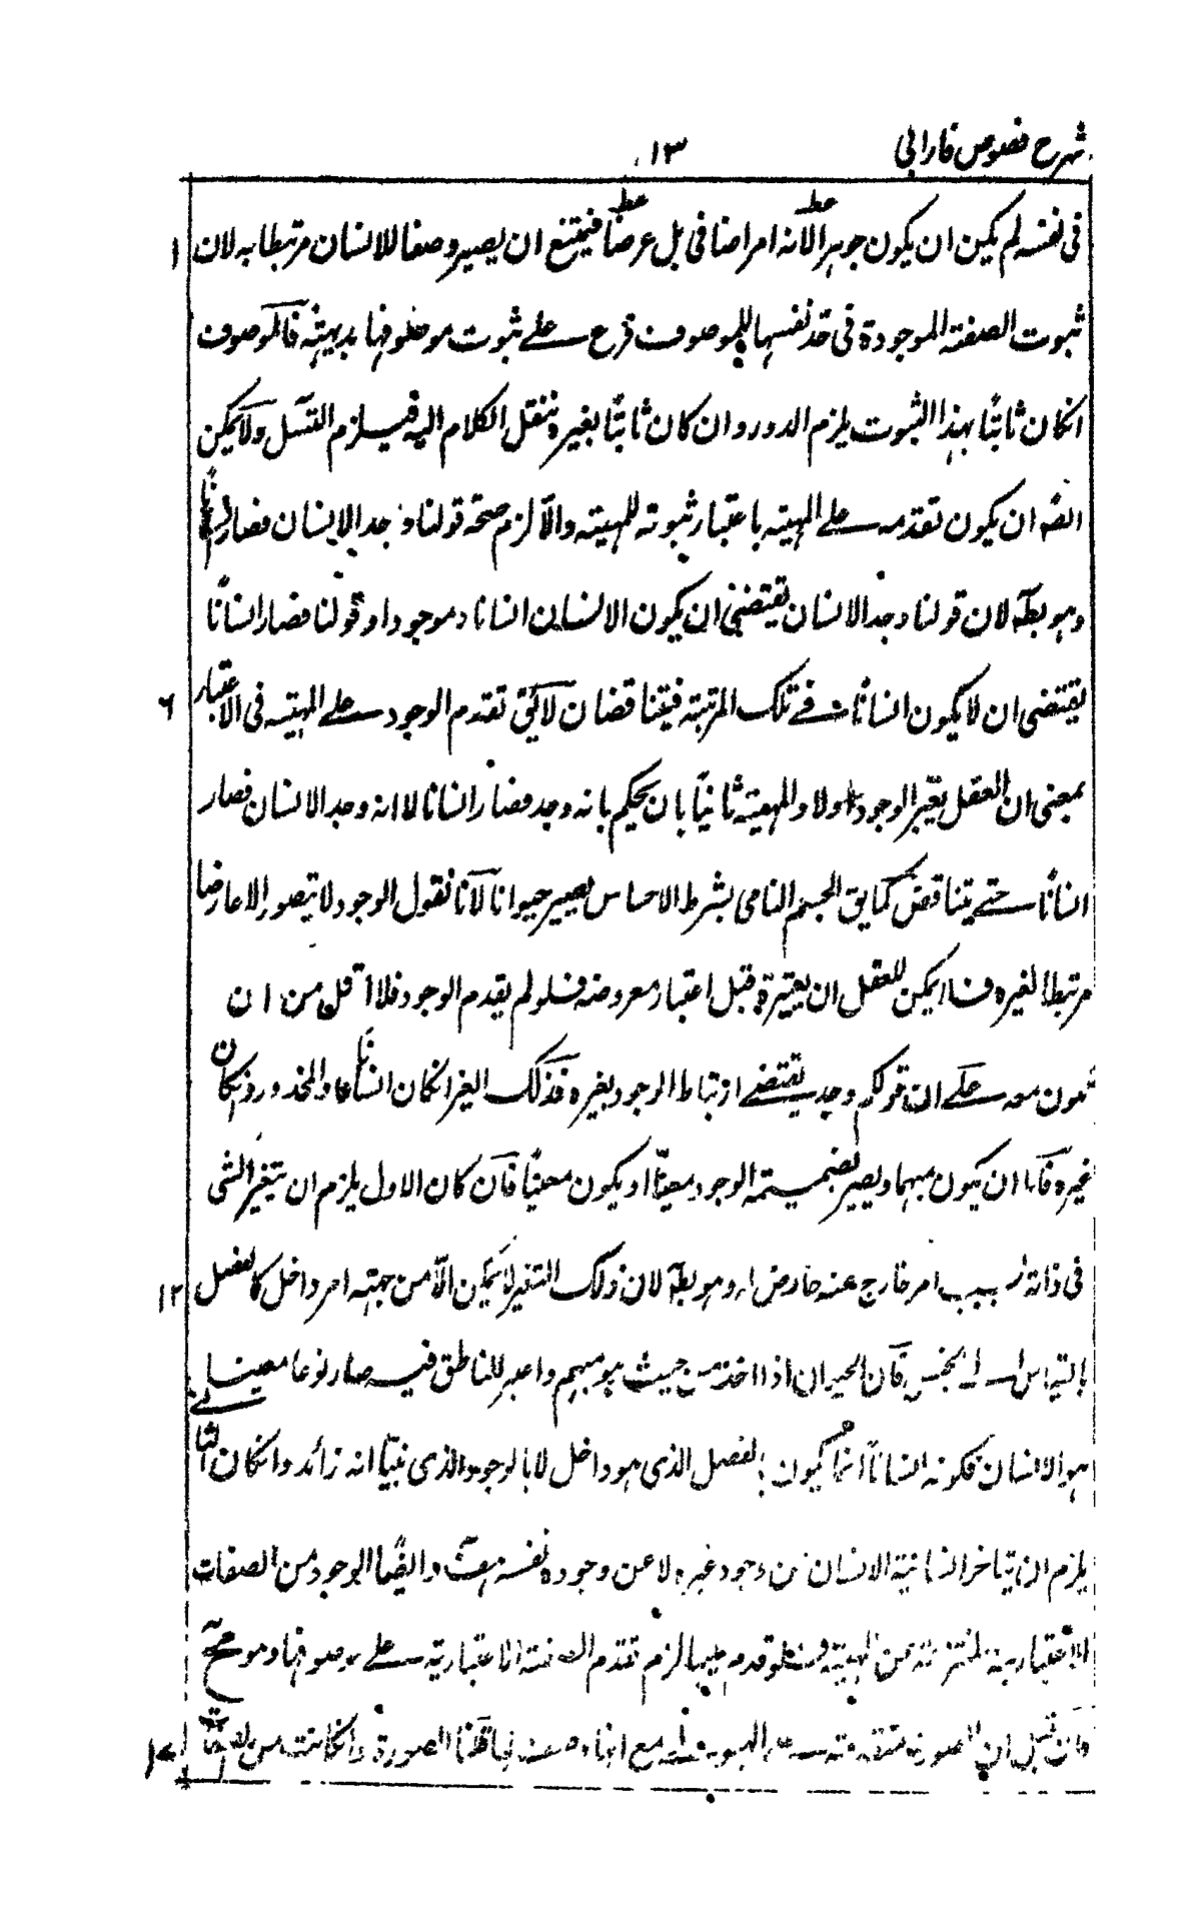 شرح فصوص فارابی ١٣
فی نفسه لم یکن ان یکون جوهرا لانه امر اضافی بل عرضا فیمتنع ان یصیر وصفا للانسان مرتبطا به لان ١
ثبوت الصفة الموجودة فی حد نفسها للموصوف فرع علے ثبوت موصوفها بدیهة فالموصوف
انکان ثابتًا بهذا الثبوت یلزم الدور وان کان ثابتًا بغیره ننقل الکلام الیه فیلزم التسل ولا یمکن
ایضًا ان یکون تقدمه علے المهیته باعتبار ثبوته للمهیته والّا لزم صحة قولنا وجد الانسان فصار انسانًا
وهو بطّ لان قولنا وجد الانسان یقتضی ان یکون الانسان انسانا و موجودا وقولنا فصار انسانًا
یقتضی ان لا یکون انسانًا فے تلک المرتبة فیتناقضان لا یقٓ تقدم الوجود علے المهیته فی الاعتبار ٦
بمعنی ان العقل یعتبر الوجود اولا والمهیته ثانیًا بان یحکم بانه وجد فصار انسانا لا انه وجد الانسان فصار
انسانًا حتے یتناقض کما یق الجسم النامی بشرط الاحساس یصیر حیوانا لانا نقول الوجود لا یتصور الا عارضا
مرتبطا لغیره فما یمکن للعقل ان یعتبره قبل اعتبار معروضه فلو لم یقدم الوجود فلا اقل من ان
یکون معه علے ان قولکم وجد یقتضے ارتباط الوجود بغیره فذلک الغیر انکان انسانًا عاد المحذور وان کان
غیره فاما ان یکون مبهما و یصیر بضمیمة الوجود معینًا او یکون معینًا فان کان الاول یلزم ان یتغیر الشی
فی ذاته بسبب امر خارج عنه عارض له وهو بطّ لان ذلک التغیر لا یمکن الّا من جهته امر داخل کالفصل ١٢
بالقیاس الے الجنس فان الحیوان اذا اخذ من حیث هو مبهم و اعتبر الناطق فیه صار نوعا معینا
هو الانسان فکونه انسانًا انما یکون بالفصل الذی هو داخل لا بالوجود الذی بینّا انه زائد وانکان الثانی
یلزم ان یتاخر انسانیة الانسان عن وجود غیره لا عن وجوده نفسه هف وایضًا الوجود من الصفات
الاعتباریة المنتزعة من المهیته فلو قدم علیها لزم تقدم الصفة الاعتباریة علے موصوفها و هو مح
فان قیل ان الصورة متقدمته علے الهیولے مع انها صفة لها قلنا الصورة وانکانت من